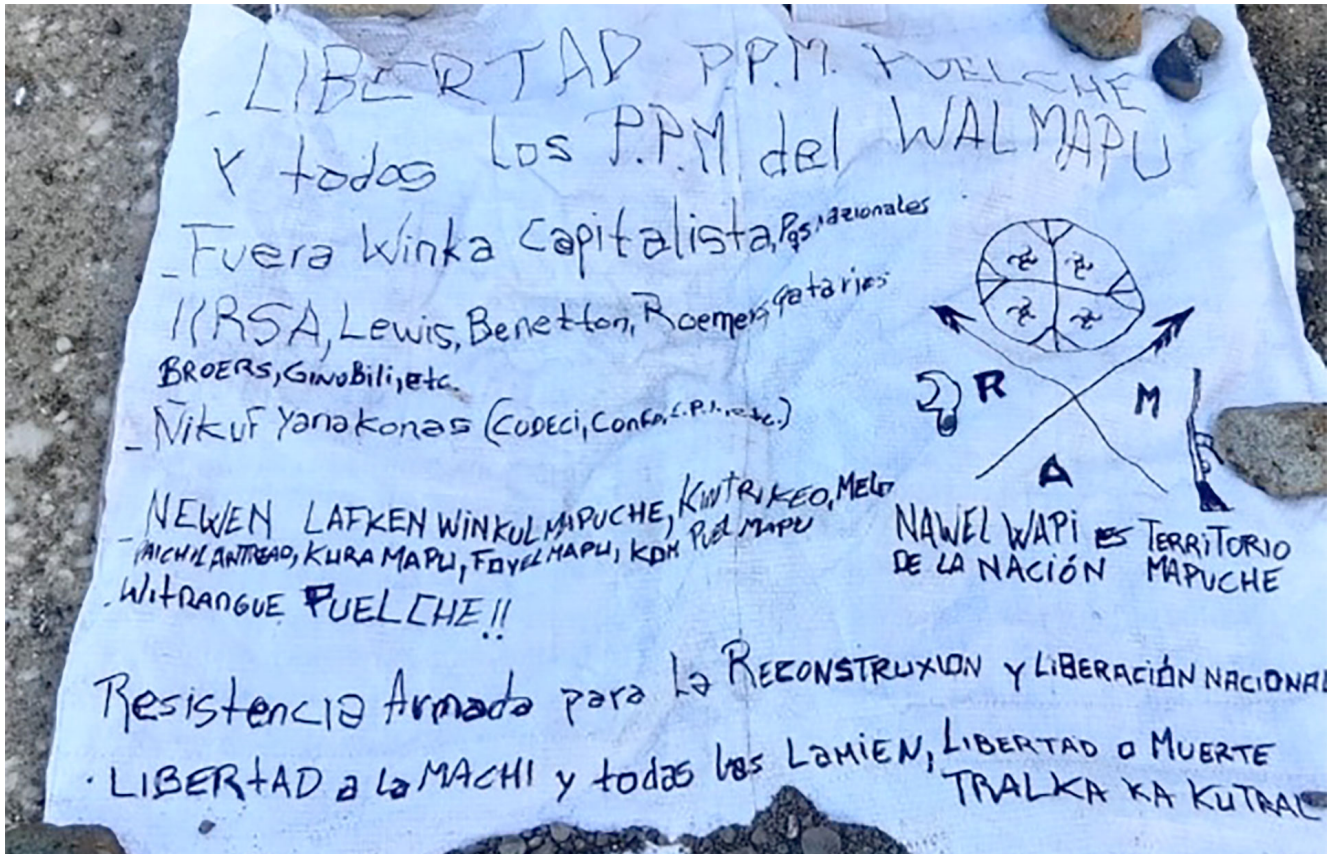 - LIBERTAD P.P.M. PUELCHE
Y todos los P.P.M del WALMAPU
- Fuera Winka Capitalista,
IIRSA, Lewis, Benetton, Roemers, qataries
BROERS, GiNoBili, etc.
- Ñikuf Yanakonas (CODECI, etc.)
- NEWEN LAFKEN WINKUL MAPUCHE, KINTRIKEO, MELO
KURA MAPU, FOYEL MAPU, KDH PUEL MAPU
- WitRANGUE PUELCHE!!
R M
A
NAWEL WAPi es TERRiTORIO
DE LA NACIÓN MAPUCHE
Resistencia Armada para La RECONSTRUXION y LiBERACIÓN NACIONAL
· LIBERtAD a la MACHI y todas las LAMIEN, LIBERTAD O MUERTE
TRALKA KA KUTRAL